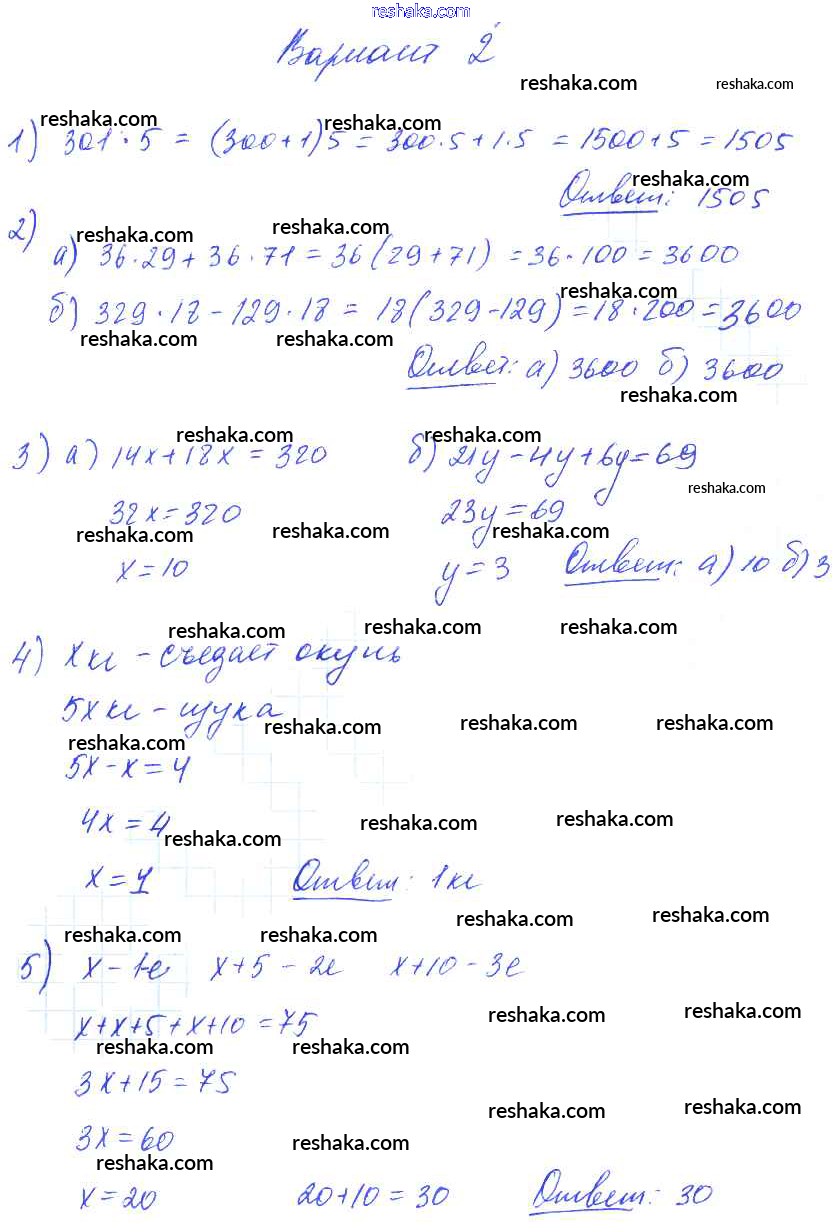 reshaka.com
Вариант 2
reshaka.com reshaka.com
reshaka.com reshaka.com
1) 301·5 = (300+1)5 = 300·5+1·5 = 1500+5 = 1505
reshaka.com
Ответ: 1505
2)
reshaka.com reshaka.com
а) 36·29+36·71=36(29+71) = 36·100=3600
reshaka.com
б) 329·18-129·18= 18(329-129)=18·200=3600
reshaka.com reshaka.com
Ответ: а) 3600 б) 3600
reshaka.com
reshaka.com reshaka.com
3) а) 14x+18x=320 б) 21y-4y+6y=69
reshaka.com
32x=320 23y=69
reshaka.com reshaka.com reshaka.com
x=10 y=3 Ответ: а) 10 б) 3
reshaka.com reshaka.com reshaka.com
4) x кг - съедает окунь
5x кг - щука
reshaka.com reshaka.com reshaka.com
reshaka.com
5x-x=4
4x=4
reshaka.com reshaka.com reshaka.com
x=1 Ответ: 1кг
reshaka.com reshaka.com
reshaka.com reshaka.com
5) x-1е x+5-2е x+10-3е
reshaka.com reshaka.com
x+x+5+x+10=75
reshaka.com reshaka.com
3x+15=75
reshaka.com reshaka.com
3x=60
reshaka.com reshaka.com
x=20 20+10=30 Ответ: 30